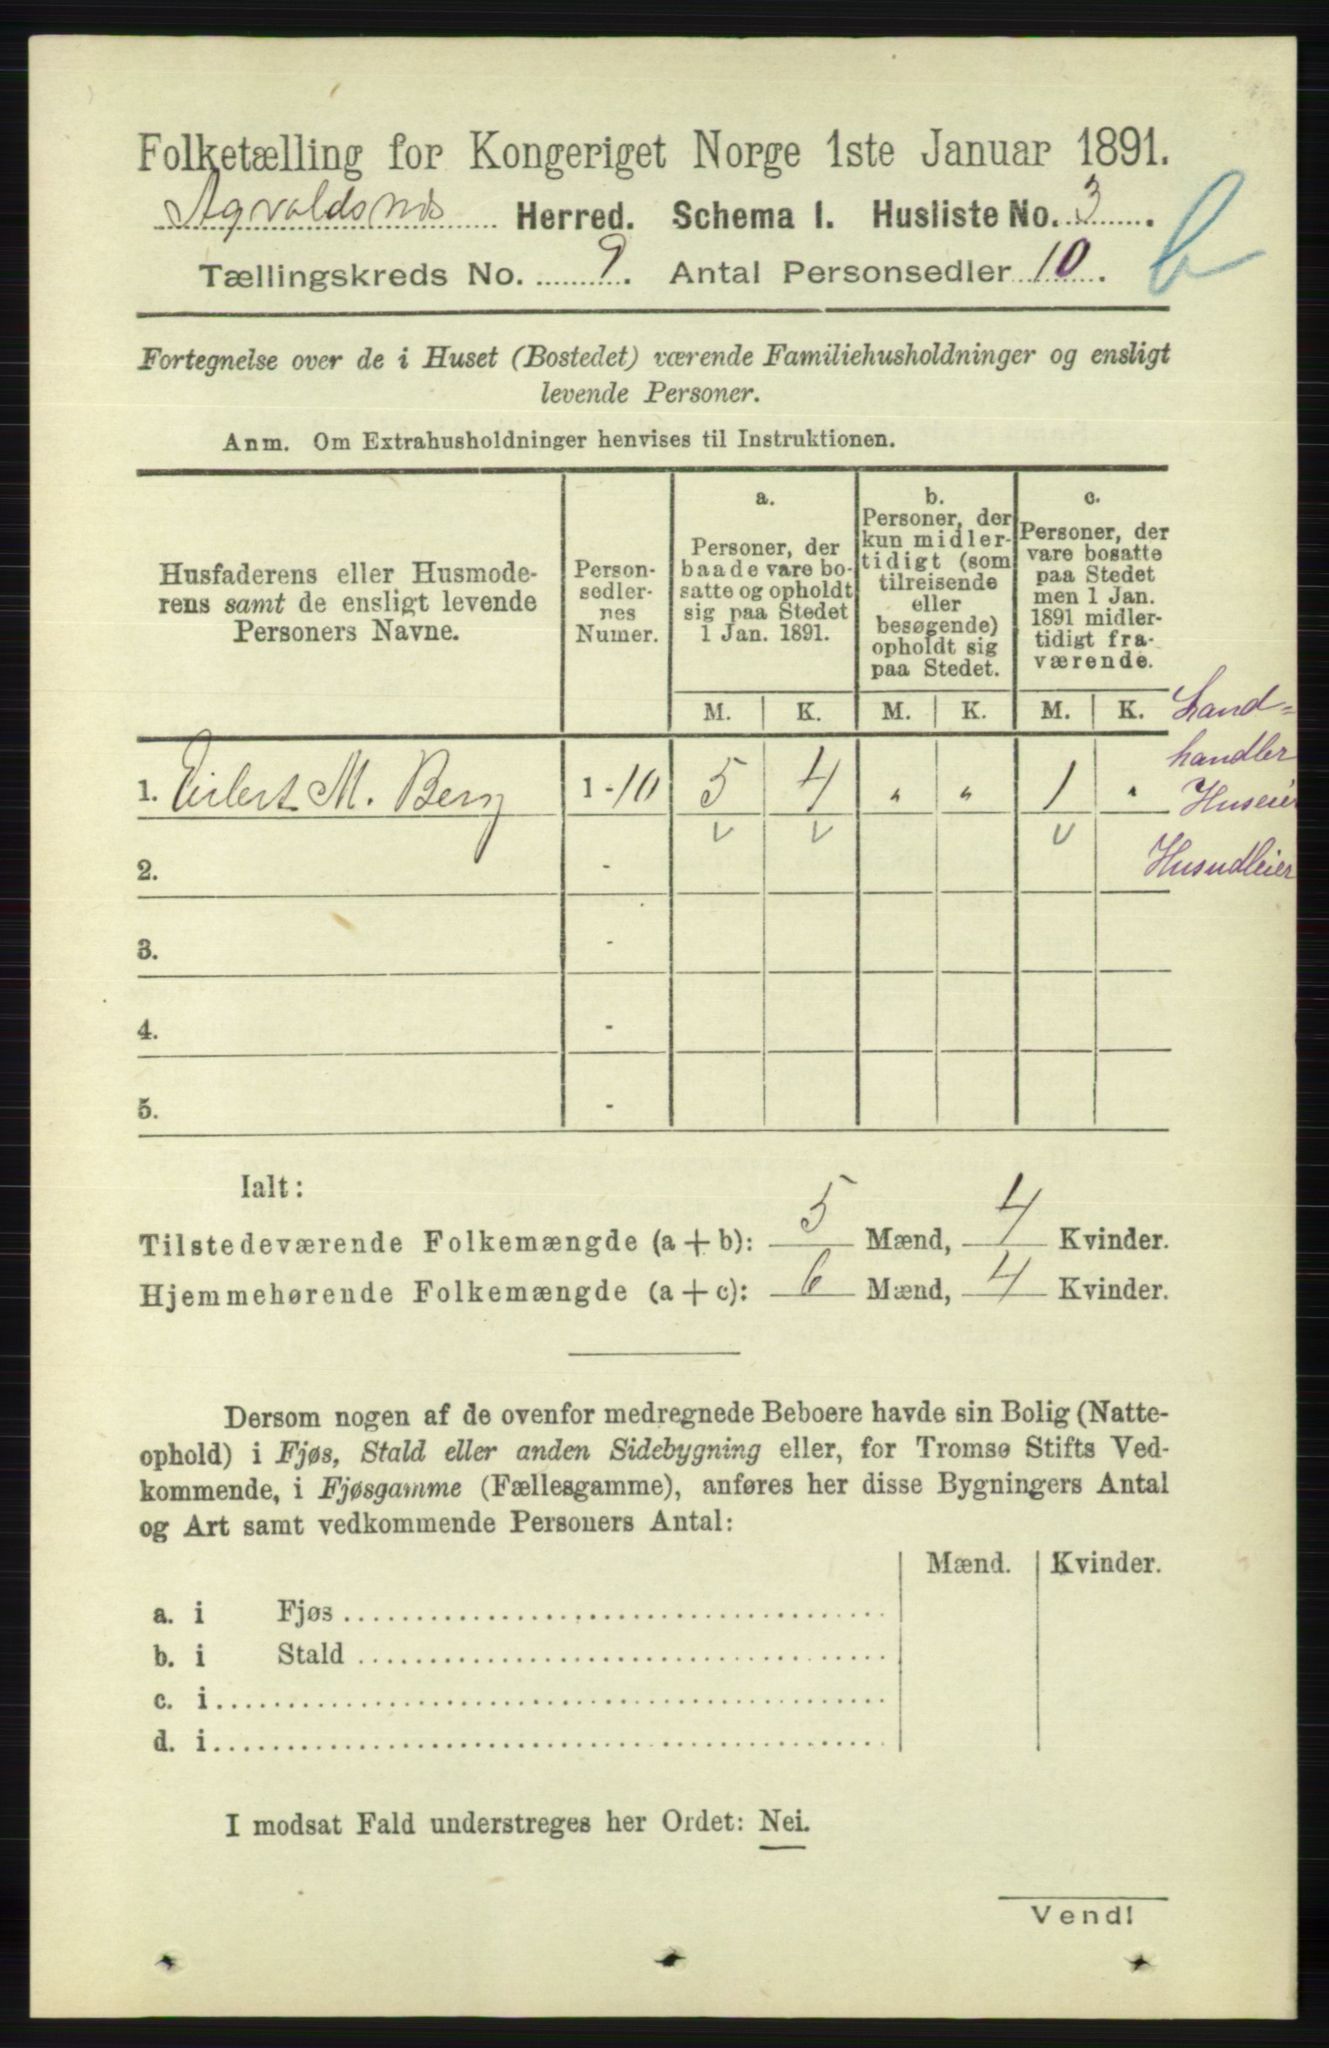 Folketælling for Kongeriget Norge 1ste Januar 1891.
Agvaldsnes Herred. Schema I. Husliste No. 3.
b
Tællingskreds No. 9. Antal Personsedler 10.
Fortegnelse over de i Huset (Bostedet) værende Familiehusholdninger og ensligt
levende Personer.
Anm. Om Extrahusholdninger henvises til Instruktionen.
Husfaderens eller Husmode-
rens samt de ensligt levende
Personers Navne.
Person-
sedler-
nes
Numer.
a.
Personer, der
baade vare bo-
satte og opholdt
sig paa Stedet
1 Jan. 1891.
b.
Personer, der
kun midler-
tidigt (som
tilreisende
eller
besøgende)
opholdt sig
paa Stedet.
c.
Personer, der
vare bosatte
paa Stedet
men 1 Jan.
1891 midler-
tidigt fra-
værende.
M. K. M. K. M. K.
Land-
handler
Huseier
Husudleier
1. Eilert M. Berg 1-10 5 4 " " 1 "
v v v
2. -
3. -
4. -
5. -
Ialt:
Tilstedeværende Folkemængde (a + b): 5 Mænd, 4 Kvinder.
Hjemmehørende Folkemængde (a + c): 6 Mænd, 4 Kvinder.
Dersom nogen af de ovenfor medregnede Beboere havde sin Bolig (Natte-
ophold) i Fjøs, Stald eller anden Sidebygning eller, for Tromsø Stifts Ved-
kommende, i Fjøsgamme (Fællesgamme), anføres her disse Bygningers Antal
og Art samt vedkommende Personers Antal:
Mænd. Kvinder.
a. i Fjøs
b. i Stald
c. i
d. i
I modsat Fald understreges her Ordet: Nei.
Vend!